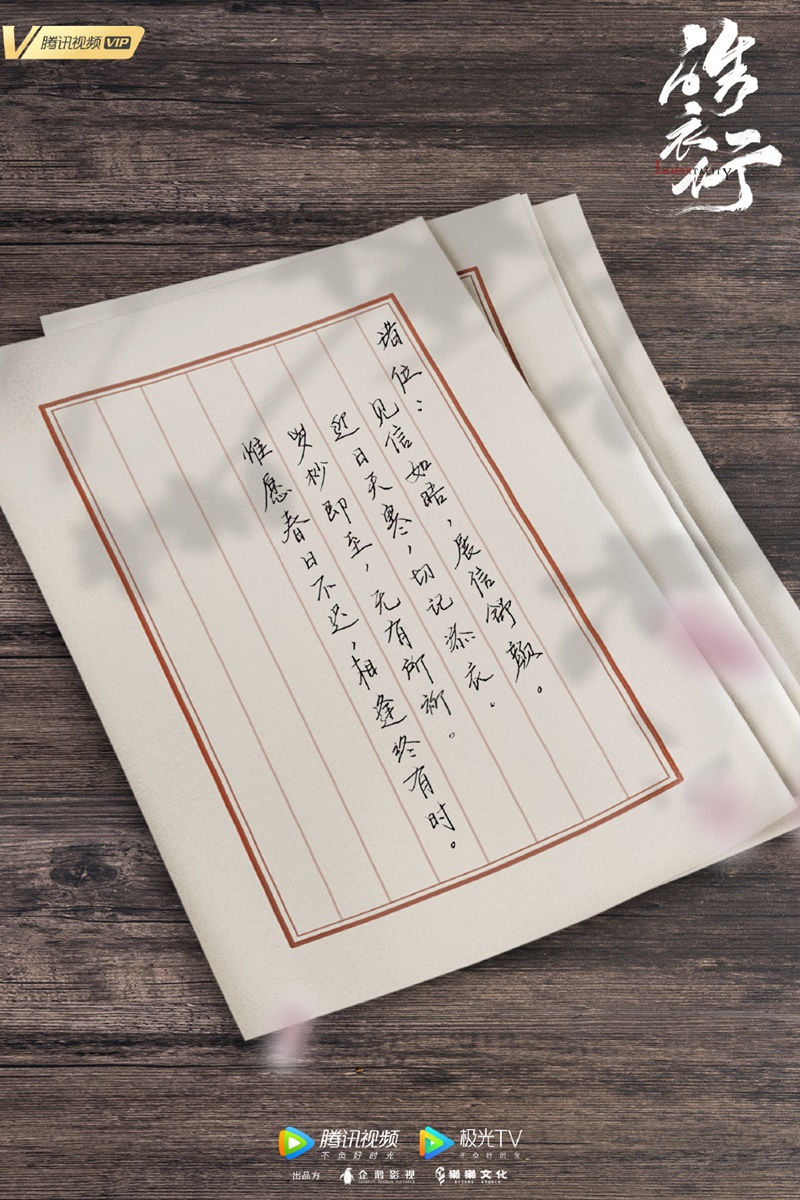 腾讯视频 VIP
皓衣行
IMMORTALITY
诸位：
见信如晤，展信舒颜。
近日天寒，切记添衣。
岁杪即至，无有所御。
惟愿春日不远，相逢终有时。
腾讯视频
不负好时光
极光TV
不负好时光
出品方
企鹅影视
獭獭文化